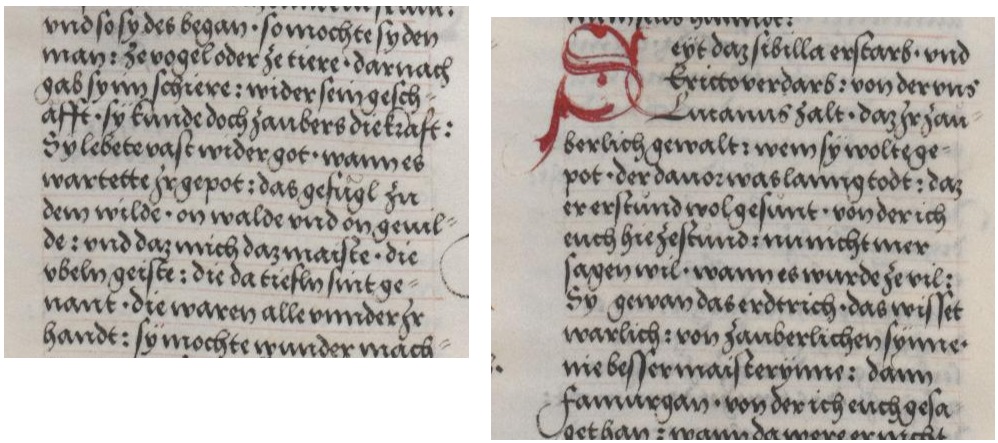 vnd so sy des began · so mochte sy den
man : ze vogel oder ze tiere · darnach
gab sy im schiere : wider sein gesch-
äfft · sy kunde doch zaubers die kraft :
Sy lebete vast wider got · wann es
wartette jr gepot : das gefügl zu
dem wilde · on walde vnd on gevil-
de : vnd daz mich daz maiste · die
vbeln geiste : die da tiefln sint ge-
nant · die waren alle vnnder jr
handt : sy mochte wunder mach-
Seyt daz sibilla erstarb · vnd
Ericto verdarb : von der vns
Lucanus zalt · daz jr zau-
berlich gewalt : wem sy wolte ge-
pot · der da vor was lanng todt : daz
er erstund wol gesunt · von der ich
euch hie ze stund : nu nicht mer
sagen wil · wann es wurde ze vil :
Sy gewan das erdtrich · das wisset
warlich : von zauberlichen synne ·
nie besser maisterynne : dann
Famurgan · von der ich euch gesa
get han : wann da were er nicht